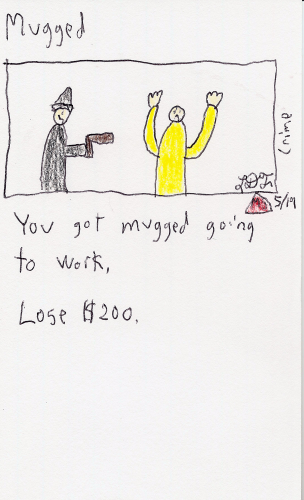 Mugged
5/19
You got mugged going
to work,
Lose $200.